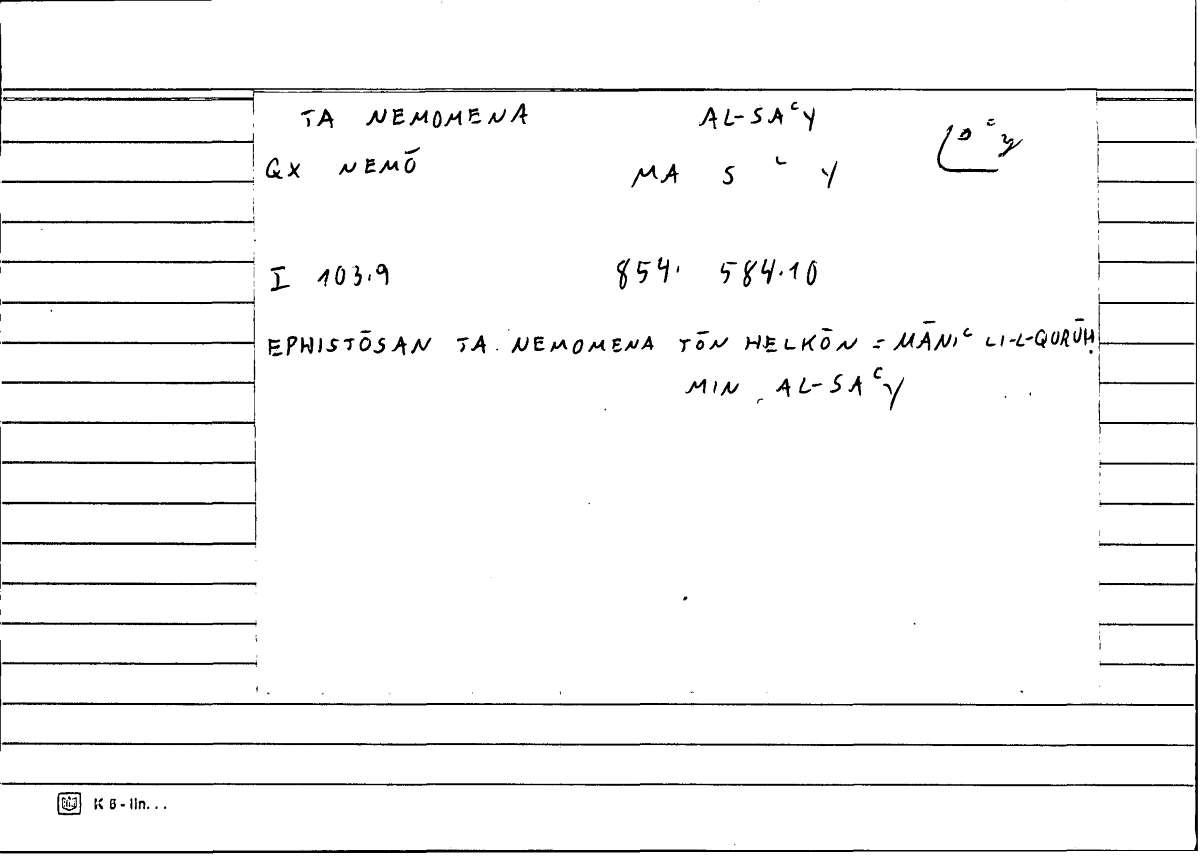 TA NEMOMENA AL-SAᶜY
QX NEMŌ MA S ᶜ Y
I 103.9 854. 584.10
EPHISTŌSAN TA NEMOMENA TŌN HELKŌN = MĀNIᶜ LI-L-QURŪḤ
MIN AL-SAᶜY
K 6 - lin...